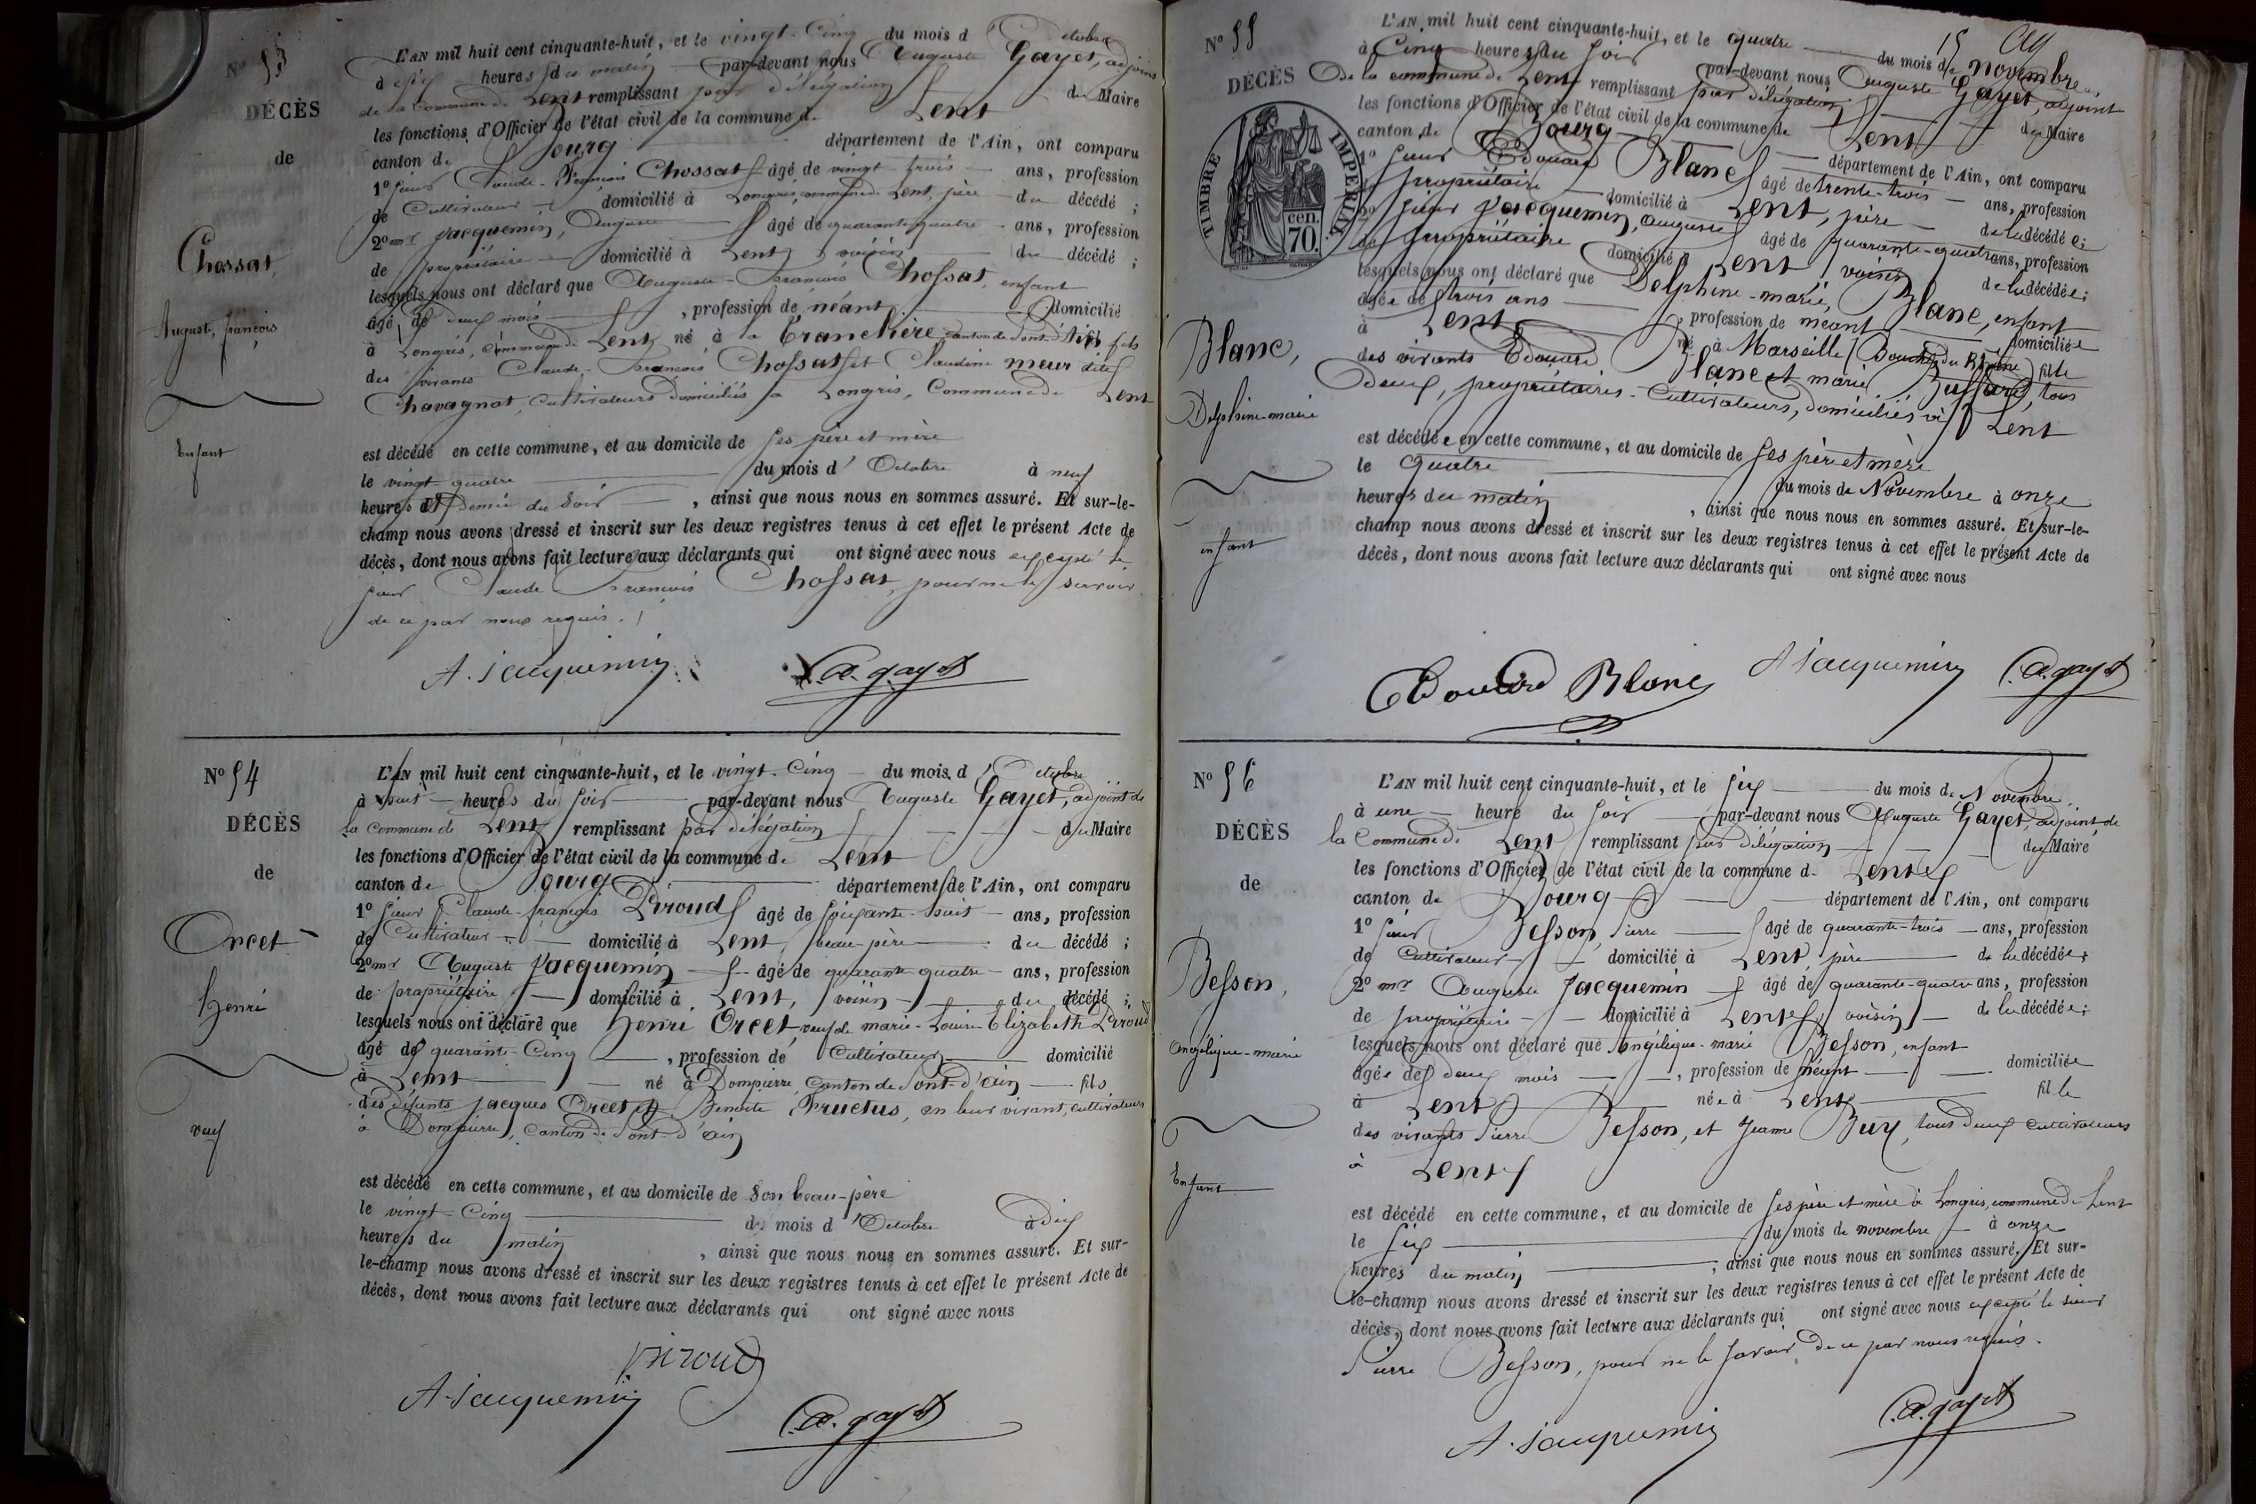 Nº 53
DÉCÈS
de
Chossat,
August, françois
Enfant
L'AN mil huit cent cinquante-huit, et le vingt-Cinq du mois d'Octobre
à six heures du matin par-devant nous Auguste Gayet, adjoint
de la Commune de Lent remplissant par délégation du Maire
les fonctions d'Officier de l'état civil de la commune de Lent
canton de Bourg département de l'Ain, ont comparu
1º Sieur Claude-François Chossat âgé de vingt-trois ans, profession
de Cultivateur domicilié à Longris, commune de Lent, père du décédé ;
2º mr Jacquemin, Auguste âgé de quarante quatre ans, profession
de propriétaire domicilié à Lent, voisin du décédé ;
lesquels nous ont déclaré que Auguste-François Chossat, enfant
âgé de deux mois , profession de néant domicilié
à Longris, commune de Lent né à la Tranclière, canton de Pont-d'Ain fils
des vivants Claude-François Chossat et Claudine meur dite
Chavagnat, cultivateurs domiciliés à Longris, Commune de Lent
est décédé en cette commune, et au domicile de ses père et mère
le vingt-quatre du mois d'Octobre à neuf
heures et demie du soir , ainsi que nous nous en sommes assuré. Et sur-le-
champ nous avons dressé et inscrit sur les deux registres tenus à cet effet le présent Acte de
décès, dont nous avons fait lecture aux déclarants qui ont signé avec nous excepté le
sieur Claude François Chossat, pour ne le savoir
de ce par nous requis.
A. Jacquemin A. gayet
Nº 54
DÉCÈS
de
Orcet
henri
veuf
L'AN mil huit cent cinquante-huit, et le vingt-Cinq du mois d'Octobre
à huit heures du soir par-devant nous Auguste Gayet, adjoint de
la Commune de Lent remplissant par délégation du Maire
les fonctions d'Officier de l'état civil de la commune de Lent
canton de Bourg département de l'Ain, ont comparu
1º Sieur Claude-françois Piroud âgé de soixante-huit ans, profession
de Cultivateur domicilié à Lent, beau-père du décédé ;
2º mr Auguste Jacquemin âgé de quarante quatre ans, profession
de propriétaire domicilié à Lent, voisin du décédé ;
lesquels nous ont déclaré que henri Orcet, veuf de marie-Louise-Elizabeth Piroud
âgé de quarante-Cinq , profession de Cultivateur domicilié
à Lent né à Dompierre, Canton de Pont-d'ain fils
des défunts jacques Orcet et Benoite Fructus, en leur vivant, cultivateurs
à Dompierre, canton de Pont-d'ain
est décédé en cette commune, et au domicile de son beau-père
le vingt-Cinq du mois d'Octobre à Dix
heures du matin , ainsi que nous nous en sommes assuré. Et sur-
le-champ nous avons dressé et inscrit sur les deux registres tenus à cet effet le présent Acte de
décès, dont nous avons fait lecture aux déclarants qui ont signé avec nous
piroud
A. Jacquemin A. gayet
15
Nº 55
DÉCÈS
TIMBRE IMPÉRIAL
cen.
70.
Blanc,
Delphine-marie
enfant
L'AN mil huit cent cinquante-huit, et le quatre du mois de novembre,
à Cinq heures du soir par-devant nous Auguste Gayet, adjoint
De la commune de Lent remplissant par délégation du Maire
les fonctions d'Officier de l'état civil de la commune de Lent
canton de Bourg département de l'Ain, ont comparu
1º Sieur Edouard Blanc âgé de trente-trois ans, profession
de propriétaire domicilié à Lent, père de la décédée ;
2º Sieur Jacquemin, auguste âgé de quarante-quatre ans, profession
de propriétaire domicilié à Lent, voisin de la décédée ;
lesquels nous ont déclaré que Delphine-marie Blanc, enfant
âgée de trois ans , profession de néant domiciliée
à Lent née à Marseille (Bouches du Rhône) fille
des vivants Edouard Blanc et marie Buffard, tous
Deux, propriétaires-cultivateurs, domiciliés à Lent
est décédée en cette commune, et au domicile de ses père et mère
le quatre du mois de Novembre à onze
heures du matin , ainsi que nous nous en sommes assuré. Et sur-le-
champ nous avons dressé et inscrit sur les deux registres tenus à cet effet le présent Acte de
décès, dont nous avons fait lecture aux déclarants qui ont signé avec nous
Edouard Blanc A Jacquemin A. gayet
Nº 56
DÉCÈS
de
Besson,
angélique-marie
Enfant
L'AN mil huit cent cinquante-huit, et le six du mois de Novembre
à une heure du soir par-devant nous Auguste Gayet, adjoint de
la Commune de Lent remplissant par délégation du Maire
les fonctions d'Officier de l'état civil de la commune de Lent
canton de Bourg département de l'Ain, ont comparu
1º Sieur Besson, Pierre âgé de quarante-trois ans, profession
de Cultivateur domicilié à Lent, père de la décédée ;
2º mr Auguste Jacquemin âgé de quarante-quatre ans, profession
de propriétaire domicilié à Lent, voisin de la décédée ;
lesquels nous ont déclaré que Angélique-marie Besson, enfant
âgée de deux mois , profession de néant domiciliée
à Lent née à Lent fille
des vivants Pierre Besson, et Jeanne Buy, tous deux cultivateurs
à Lent
est décédé en cette commune, et au domicile de ses père et mère à Longris, commune de Lent
le six du mois de novembre à onze
heures du matin , ainsi que nous nous en sommes assuré. Et sur-
le-champ nous avons dressé et inscrit sur les deux registres tenus à cet effet le présent Acte de
décès, dont nous avons fait lecture aux déclarants qui ont signé avec nous excepté le sieur
Pierre Besson, pour ne le savoir de ce par nous requis.
A. Jacquemin A. gayet